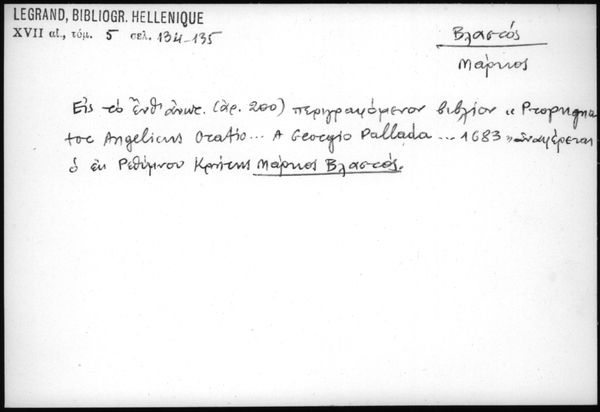 LEGRAND, BIBLIOGR. HELLENIQUE
XVII αἰ., τόμ. 5 σελ. 134-135
Βλαστός
Μάρκος
Εἰς τὸ ἔνθ' ἀνωτ. (ἀρ. 200) περιγραφόμενον βιβλίον « Propugna
tor Angelicus Oratio... A Georgio Pallada ... 1683 » ἀναφέρεται
ὁ ἐκ Ρεθύμνου Κρήτης Μάρκος Βλαστός.